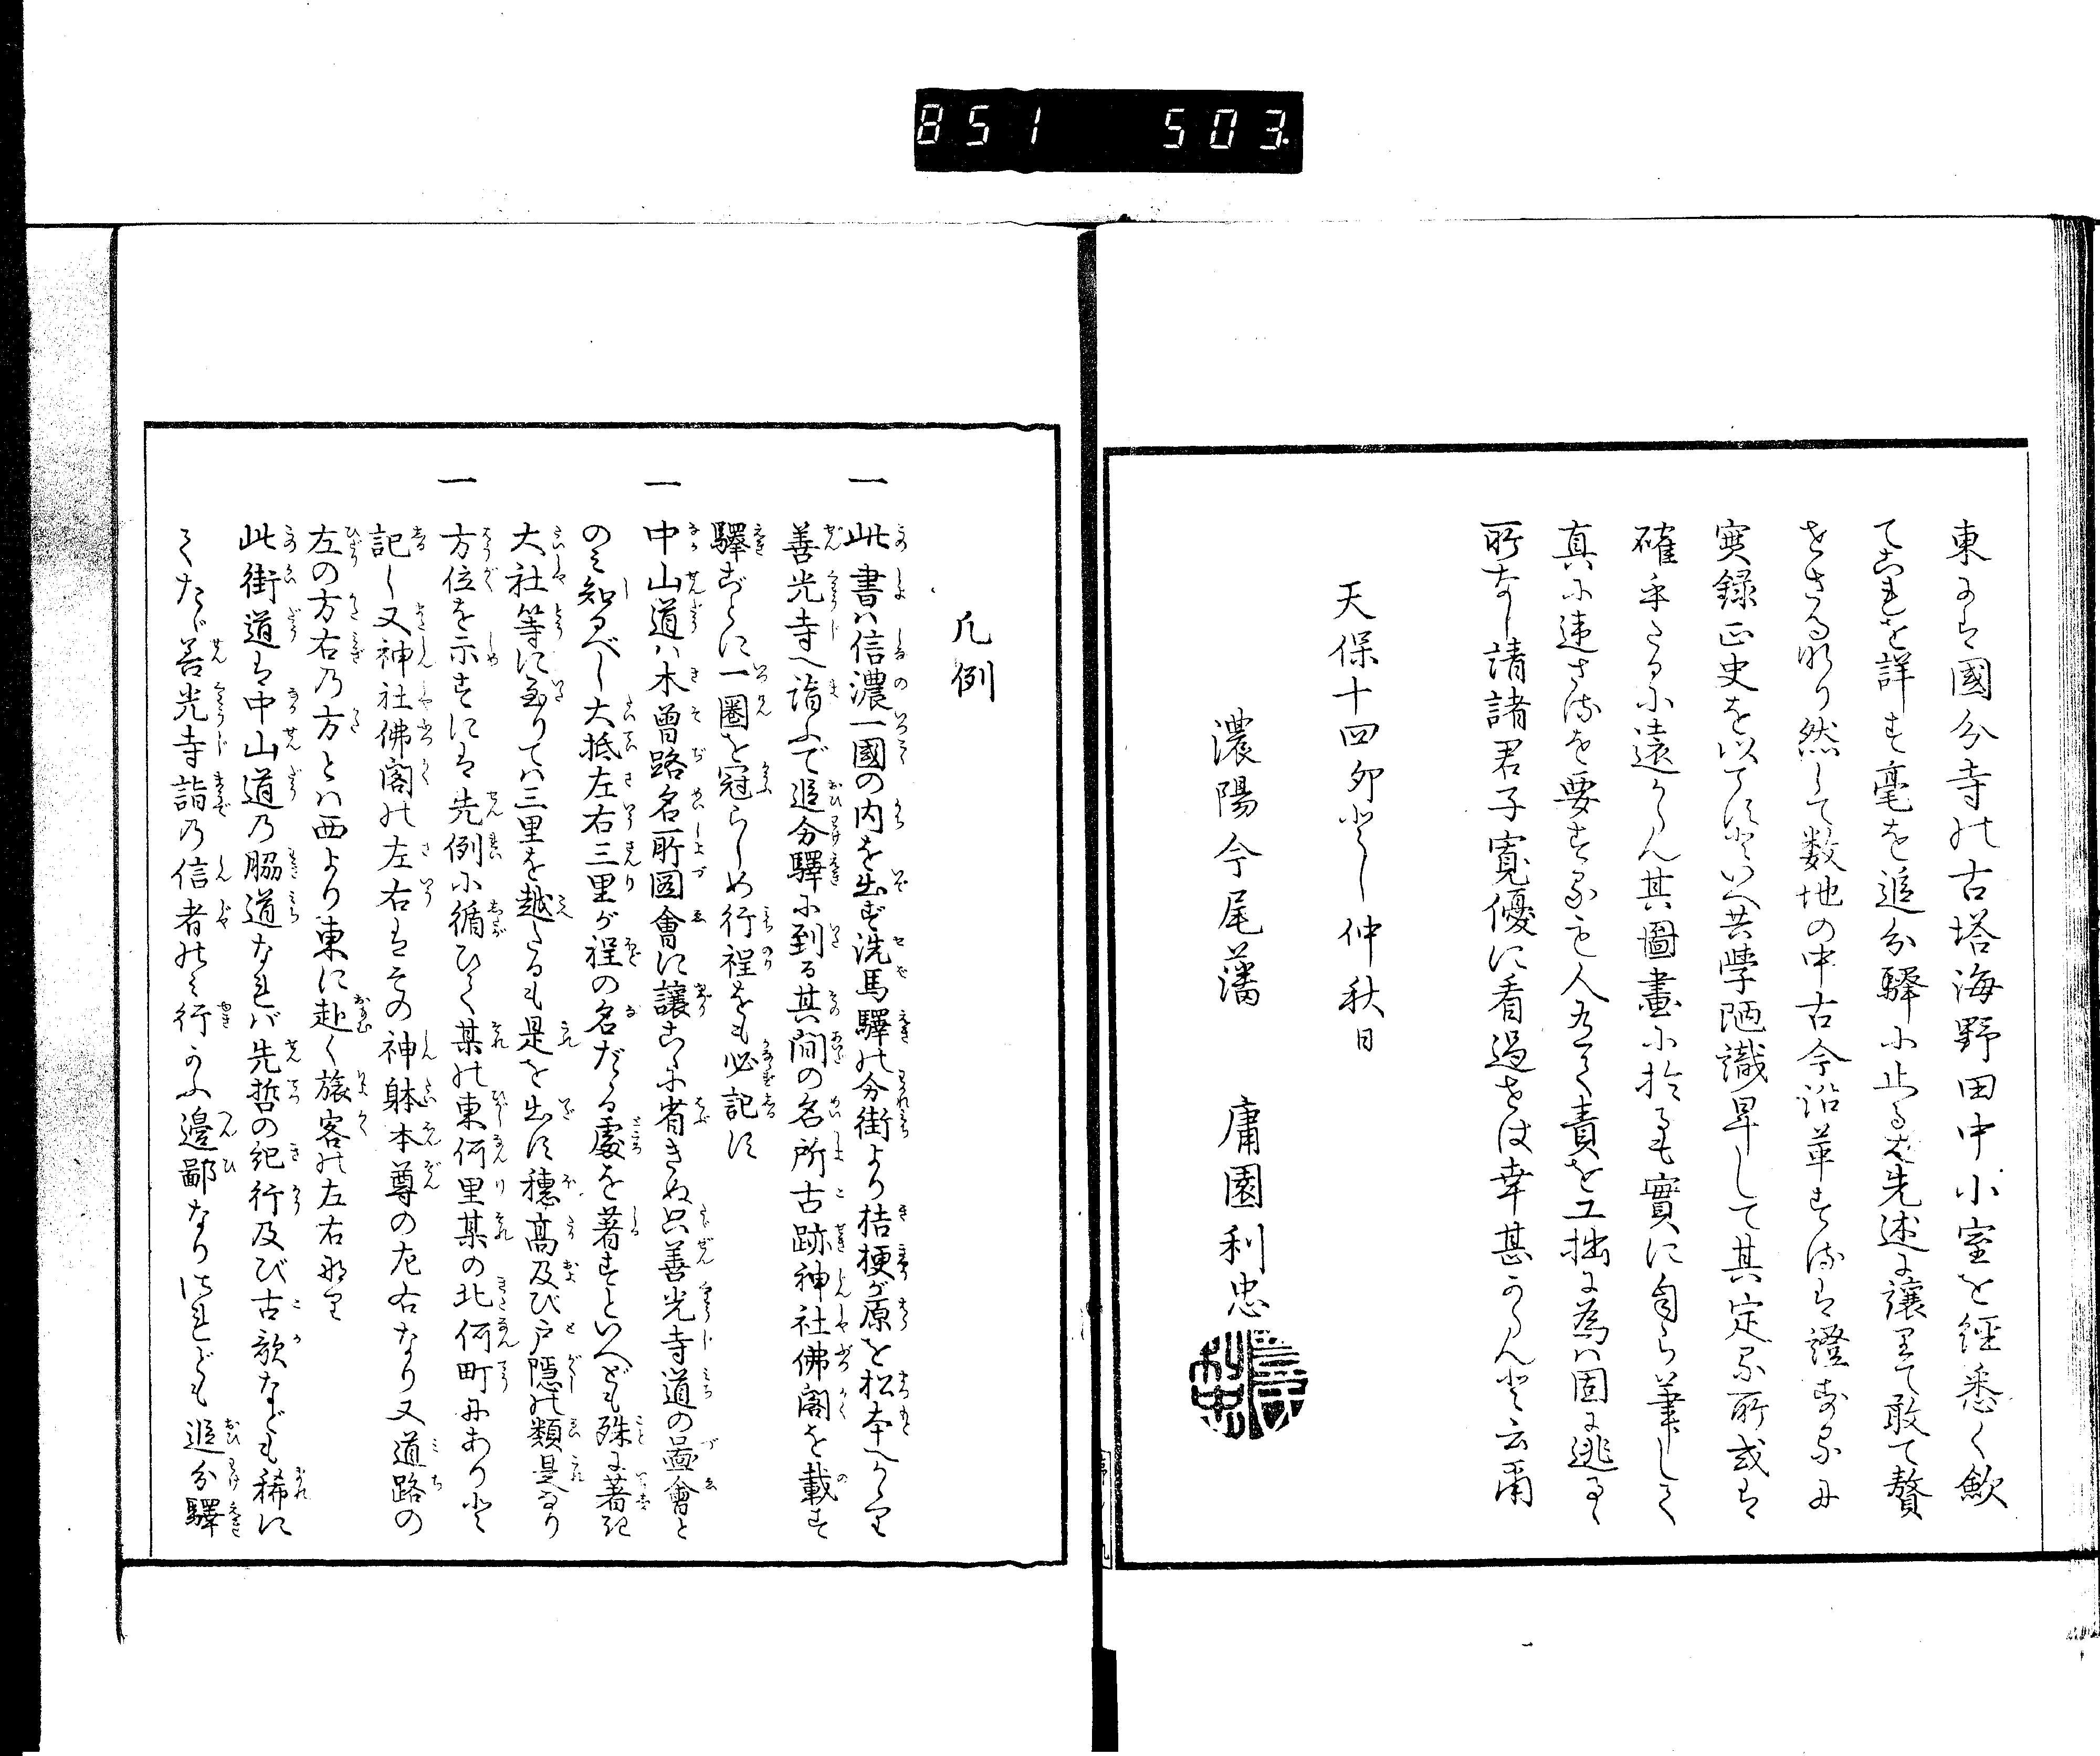 851 503
東には國分寺の古塔海野田中小室を經悉く歟
てこれを詳す毫を追分驛に止るは先述に讓りて敢て贅
せさる所り然して数地の中古今沿革する は證するに
実録正史を以てすといへ共學陋識卑して其定る所或は
確乎たるに遠からん其圖畫に於るも實に自ら筆して
真に違さるを要するも人 責を工拙に為は固に逃るゝ
所なし請諸君子寛優に看過せは幸甚からんと云爾
天保十四卯とし仲秋日
濃陽今尾藩 庸園利忠
凡例
一 此書は信濃一國の内を出ず洗馬驛の分街より桔梗が原を松本へかゝり
善光寺へ詣ふで追分驛に到る其間の名所古跡神社佛閣を載す
驛ごとに一圏を冠らしめ行程をも必記す
一 中山道は木曽路名所圖會に讓こゝに省きぬ只善光寺道の圖會と
のみ知るべし大抵左右三里が程の名だゝる處を著すといへども殊に著き
大社等に至りては三里を越たるも是を出す穂高及び戸隠の類是なり
一 方位を示すには先例に循ひて某の東何里某の北何町にありと
記し又神社佛閣の左右はその神躰本尊の左右なり又道路の
左の方右の方とは西より東に赴く旅客の左右なり
此街道は中山道の脇道なれば先哲の紀行及び古歌なども稀に
てたゞ善光寺詣の信者のみ行かふ邊鄙なりけれども追分驛